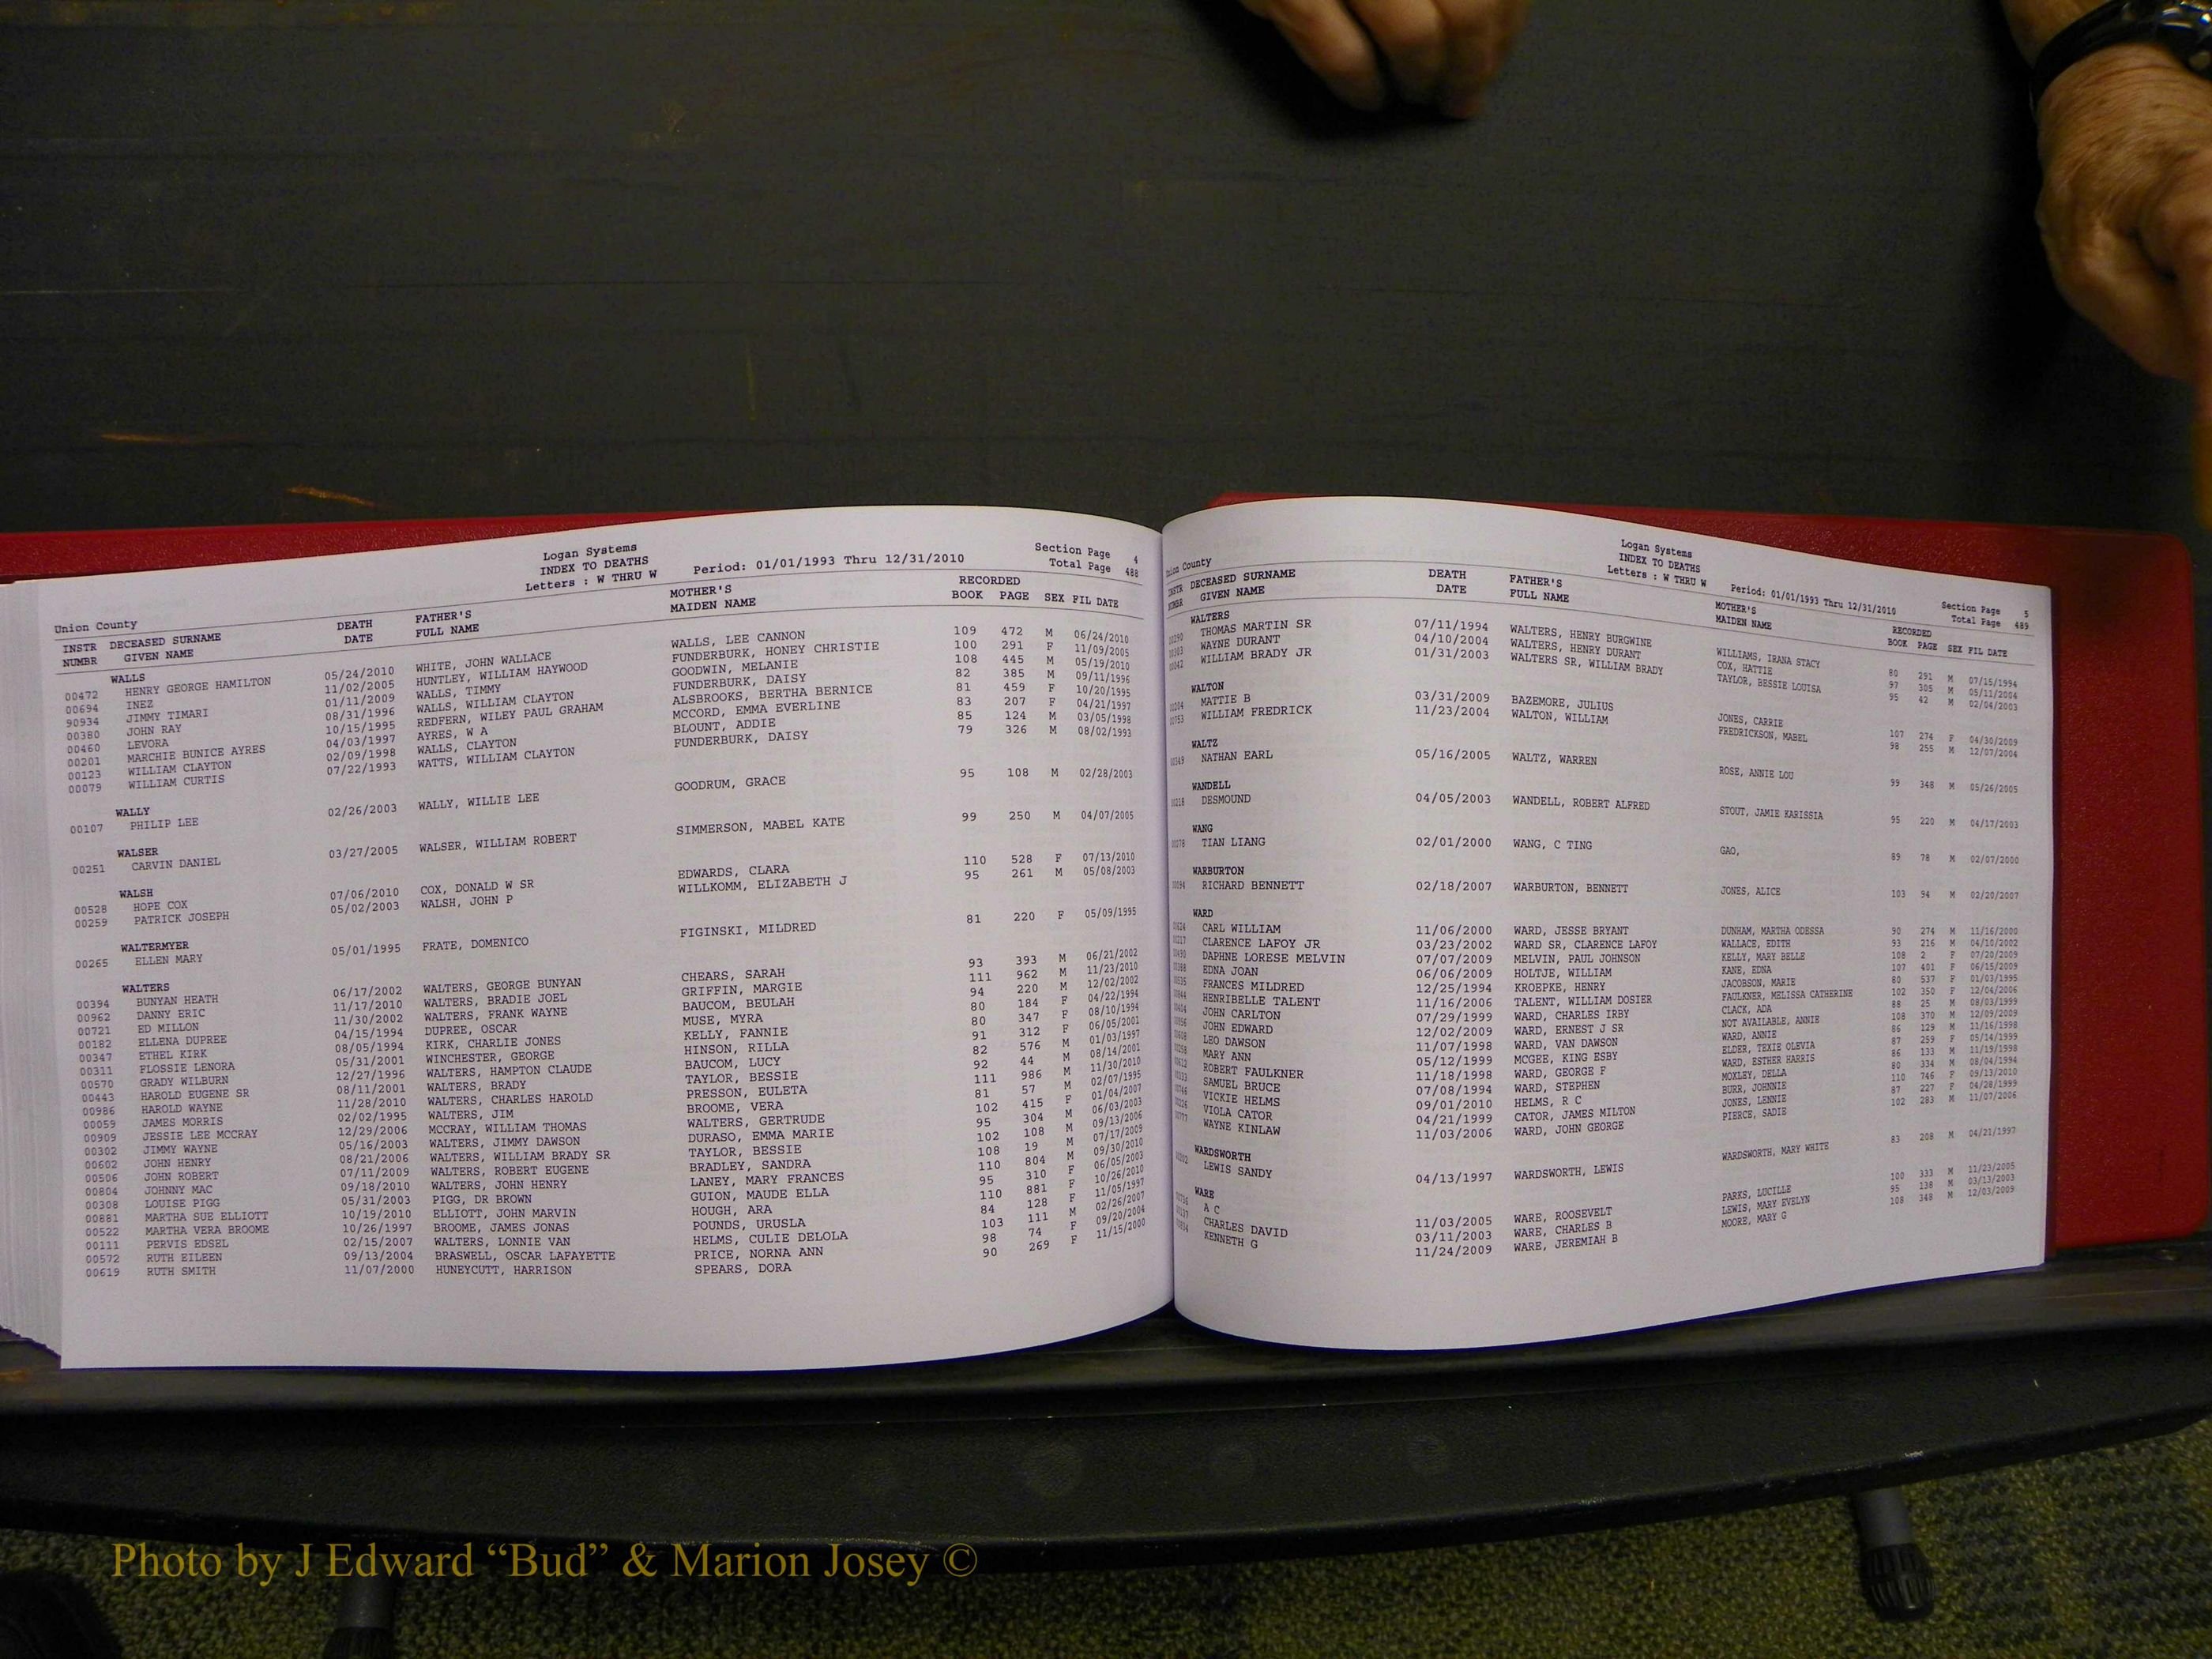 Logan Systems
INDEX TO DEATHS
Letters : W THRU W Period: 01/01/1993 Thru 12/31/2010
Section Page 4
Total Page 488
Union County
INSTR DECEASED SURNAME DEATH FATHER'S MOTHER'S RECORDED
NUMBR GIVEN NAME DATE FULL NAME MAIDEN NAME BOOK PAGE SEX FIL DATE
WALLS
00472 HENRY GEORGE HAMILTON 05/24/2010 WHITE, JOHN WALLACE WALLS, LEE CANNON 109 472 M 06/24/2010
00694 INEZ 11/02/2005 HUNTLEY, WILLIAM HAYWOOD FUNDERBURK, HONEY CHRISTIE 100 291 F 11/09/2005
90934 JIMMY TIMARI 01/11/2009 WALLS, TIMMY GOODWIN, MELANIE 108 445 M 05/19/2010
00380 JOHN RAY 08/31/1996 WALLS, WILLIAM CLAYTON FUNDERBURK, DAISY 82 385 M 09/11/1996
00460 LEVORA 10/15/1995 REDFERN, WILEY PAUL GRAHAM ALSBROOKS, BERTHA BERNICE 81 459 F 10/20/1995
00201 MARCHIE BUNICE AYRES 04/03/1997 AYRES, W A MCCORD, EMMA EVERLINE 83 207 F 04/21/1997
00123 WILLIAM CLAYTON 02/09/1998 WALLS, CLAYTON BLOUNT, ADDIE 85 124 M 03/05/1998
00079 WILLIAM CURTIS 07/22/1993 WATTS, WILLIAM CLAYTON FUNDERBURK, DAISY 79 326 M 08/02/1993
WALLY
00107 PHILIP LEE 02/26/2003 WALLY, WILLIE LEE GOODRUM, GRACE 95 108 M 02/28/2003
WALSER
00251 CARVIN DANIEL 03/27/2005 WALSER, WILLIAM ROBERT SIMMERSON, MABEL KATE 99 250 M 04/07/2005
WALSH
00528 HOPE COX 07/06/2010 COX, DONALD W SR EDWARDS, CLARA 110 528 F 07/13/2010
00259 PATRICK JOSEPH 05/02/2003 WALSH, JOHN P WILLKOMM, ELIZABETH J 95 261 M 05/08/2003
WALTERMYER
00265 ELLEN MARY 05/01/1995 FRATE, DOMENICO FIGINSKI, MILDRED 81 220 F 05/09/1995
WALTERS
00394 BUNYAN HEATH 06/17/2002 WALTERS, GEORGE BUNYAN CHEARS, SARAH 93 393 M 06/21/2002
00962 DANNY ERIC 11/17/2010 WALTERS, BRADIE JOEL GRIFFIN, MARGIE 111 962 M 11/23/2010
00721 ED MILLON 11/30/2002 WALTERS, FRANK WAYNE BAUCOM, BEULAH 94 220 M 12/02/2002
00182 ELLENA DUPREE 04/15/1994 DUPREE, OSCAR MUSE, MYRA 80 184 F 04/22/1994
00347 ETHEL KIRK 08/05/1994 KIRK, CHARLIE JONES KELLY, FANNIE 80 347 F 08/10/1994
00311 FLOSSIE LENORA 05/31/2001 WINCHESTER, GEORGE HINSON, RILLA 91 312 F 06/05/2001
00570 GRADY WILBURN 12/27/1996 WALTERS, HAMPTON CLAUDE BAUCOM, LUCY 82 576 M 01/03/1997
00443 HAROLD EUGENE SR 08/11/2001 WALTERS, BRADY TAYLOR, BESSIE 92 44 M 08/14/2001
00986 HAROLD WAYNE 11/28/2010 WALTERS, CHARLES HAROLD PRESSON, EULETA 111 986 M 11/30/2010
00059 JAMES MORRIS 02/02/1995 WALTERS, JIM BROOME, VERA 81 57 M 02/07/1995
00909 JESSIE LEE MCCRAY 12/29/2006 MCCRAY, WILLIAM THOMAS WALTERS, GERTRUDE 102 415 F 01/04/2007
00302 JIMMY WAYNE 05/16/2003 WALTERS, JIMMY DAWSON DURASO, EMMA MARIE 95 304 M 06/03/2003
00602 JOHN HENRY 08/21/2006 WALTERS, WILLIAM BRADY SR TAYLOR, BESSIE 102 108 M 09/13/2006
00506 JOHN ROBERT 07/11/2009 WALTERS, ROBERT EUGENE BRADLEY, SANDRA 108 19 M 07/17/2009
00804 JOHNNY MAC 09/18/2010 WALTERS, JOHN HENRY LANEY, MARY FRANCES 110 804 M 09/30/2010
00308 LOUISE PIGG 05/31/2003 PIGG, DR BROWN GUION, MAUDE ELLA 95 310 F 06/05/2003
00881 MARTHA SUE ELLIOTT 10/19/2010 ELLIOTT, JOHN MARVIN HOUGH, ARA 110 881 F 10/26/2010
00522 MARTHA VERA BROOME 10/26/1997 BROOME, JAMES JONAS POUNDS, URUSLA 84 128 F 11/05/1997
00111 PERVIS EDSEL 02/15/2007 WALTERS, LONNIE VAN HELMS, CULIE DELOLA 103 111 M 02/26/2007
00572 RUTH EILEEN 09/13/2004 BRASWELL, OSCAR LAFAYETTE PRICE, NORNA ANN 98 74 F 09/20/2004
00619 RUTH SMITH 11/07/2000 HUNEYCUTT, HARRISON SPEARS, DORA 90 269 F 11/15/2000
Logan Systems
INDEX TO DEATHS
Letters : W THRU W Period: 01/01/1993 Thru 12/31/2010
Section Page 5
Total Page 489
Union County
INSTR DECEASED SURNAME DEATH FATHER'S MOTHER'S RECORDED
NUMBR GIVEN NAME DATE FULL NAME MAIDEN NAME BOOK PAGE SEX FIL DATE
WALTERS
THOMAS MARTIN SR 07/11/1994 WALTERS, HENRY BURGWINE WILLIAMS, IRANA STACY 80 291 M 07/15/1994
WAYNE DURANT 04/10/2004 WALTERS, HENRY DURANT COX, HATTIE 97 305 M 05/11/2004
WILLIAM BRADY JR 01/31/2003 WALTERS SR, WILLIAM BRADY TAYLOR, BESSIE LOUISA 95 42 M 02/04/2003
WALTON
MATTIE B 03/31/2009 BAZEMORE, JULIUS JONES, CARRIE 107 274 F 04/30/2009
WILLIAM FREDRICK 11/23/2004 WALTON, WILLIAM FREDRICKSON, MABEL 98 255 M 12/07/2004
WALTZ
NATHAN EARL 05/16/2005 WALTZ, WARREN ROSE, ANNIE LOU 99 348 M 05/26/2005
WANDELL
DESMOUND 04/05/2003 WANDELL, ROBERT ALFRED STOUT, JAMIE KARISSIA 95 220 M 04/17/2003
WANG
TIAN LIANG 02/01/2000 WANG, C TING GAO, 89 78 M 02/07/2000
WARBURTON
RICHARD BENNETT 02/18/2007 WARBURTON, BENNETT JONES, ALICE 103 94 M 02/20/2007
WARD
CARL WILLIAM 11/06/2000 WARD, JESSE BRYANT DUNHAM, MARTHA ODESSA 90 274 M 11/16/2000
CLARENCE LAFOY JR 03/23/2002 WARD SR, CLARENCE LAFOY WALLACE, EDITH 93 216 M 04/10/2002
DAPHNE LORESE MELVIN 07/07/2009 MELVIN, PAUL JOHNSON KELLY, MARY BELLE 108 2 F 07/20/2009
EDNA JOAN 06/06/2009 HOLTJE, WILLIAM KANE, EDNA 107 401 F 06/15/2009
FRANCES MILDRED 12/25/1994 KROEPKE, HENRY JACOBSON, MARIE 80 537 F 01/03/1995
HENRIBELLE TALENT 11/16/2006 TALENT, WILLIAM DOSIER FAULKNER, MELISSA CATHERINE 102 350 F 12/04/2006
JOHN CARLTON 07/29/1999 WARD, CHARLES IRBY CLACK, ADA 88 25 M 08/03/1999
JOHN EDWARD 12/02/2009 WARD, ERNEST J SR NOT AVAILABLE, ANNIE 108 370 M 12/09/2009
LEO DAWSON 11/07/1998 WARD, VAN DAWSON WARD, ANNIE 86 129 M 11/16/1998
MARY ANN 05/12/1999 MCGEE, KING ESBY ELDER, TEXIE OLEVIA 87 259 F 05/14/1999
ROBERT FAULKNER 11/18/1998 WARD, GEORGE F WARD, ESTHER HARRIS 86 133 M 11/19/1998
SAMUEL BRUCE 07/08/1994 WARD, STEPHEN MOXLEY, DELLA 80 334 M 08/04/1994
VICKIE HELMS 09/01/2010 HELMS, R C BURR, JOHNNIE 110 746 F 09/13/2010
VIOLA CATOR 04/21/1999 CATOR, JAMES MILTON JONES, LENNIE 87 227 F 04/28/1999
WAYNE KINLAW 11/03/2006 WARD, JOHN GEORGE PIERCE, SADIE 102 283 M 11/07/2006
WARDSWORTH
LEWIS SANDY 04/13/1997 WARDSWORTH, LEWIS WARDSWORTH, MARY WHITE 83 208 M 04/21/1997
WARE
A C 11/03/2005 WARE, ROOSEVELT PARKS, LUCILLE 100 333 M 11/23/2005
CHARLES DAVID 03/11/2003 WARE, CHARLES B LEWIS, MARY EVELYN 95 138 M 03/13/2003
KENNETH G 11/24/2009 WARE, JEREMIAH B MOORE, MARY G 108 348 M 12/03/2009
Photo by J Edward “Bud” & Marion Josey ©